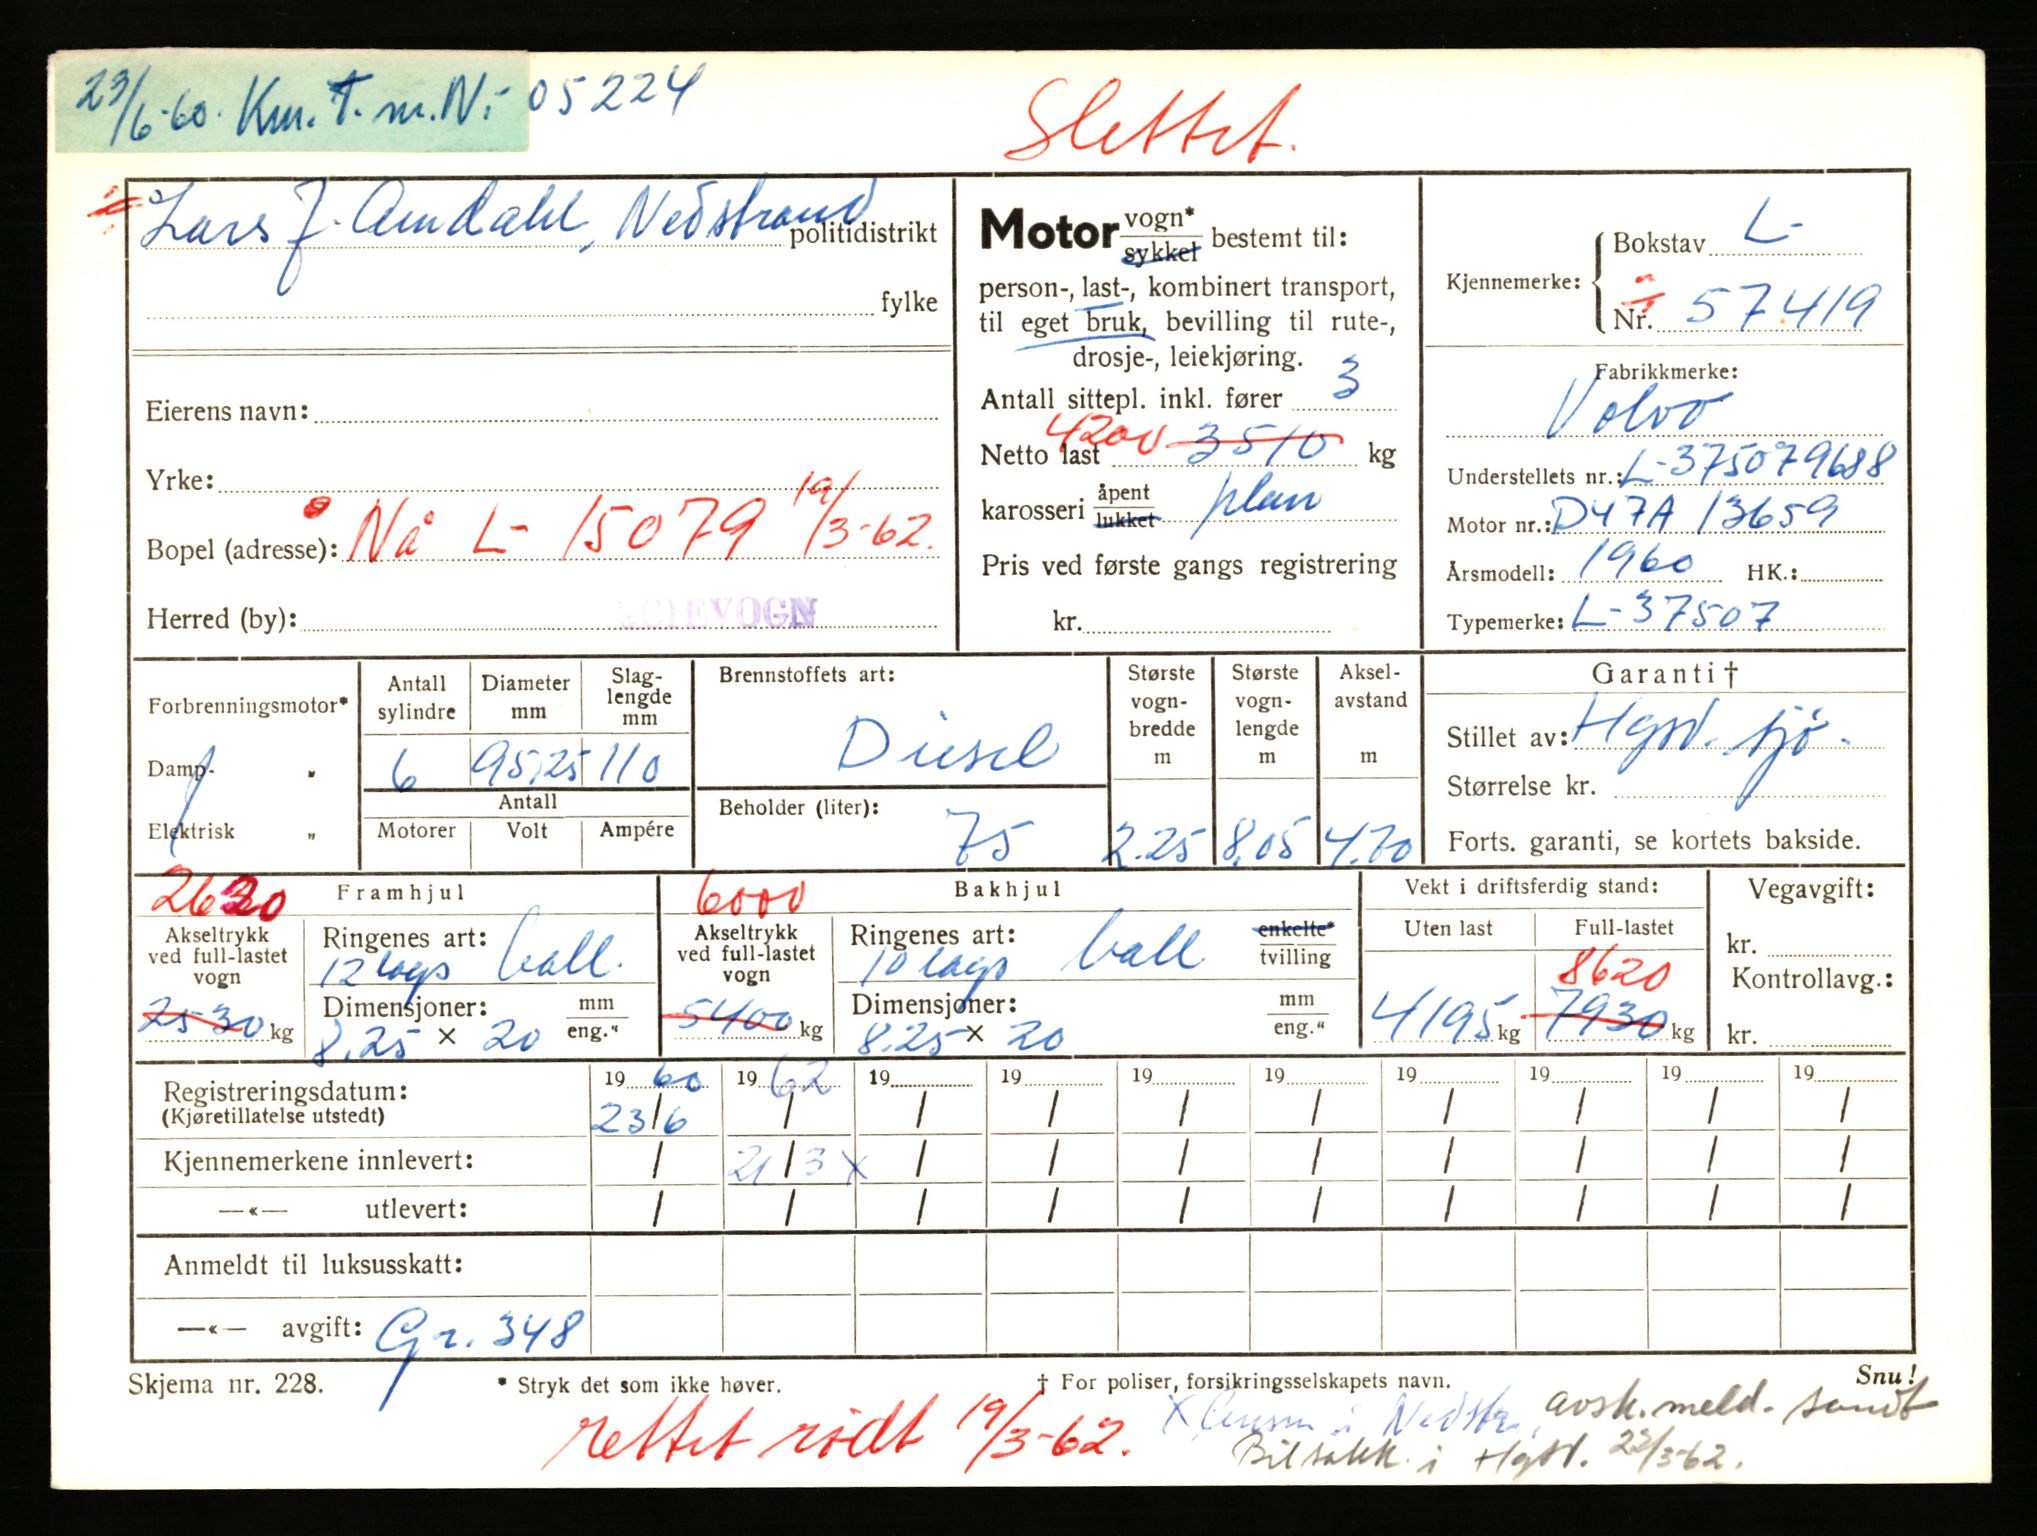 23/6-60. Km. T. m. Nr 05224
Slettet.
Lars J. Amdahl, Nedstrand politidistrikt
fylke
Eierens navn:
Yrke:
Bopel (adresse): Nå L- 15079 19/3-62.
Herred (by): LEIEVOGN
Motor vogn* / sykkel bestemt til:
person-, last-, kombinert transport,
til eget bruk, bevilling til rute-,
drosje-, leiekjøring.
Antall sittepl. inkl. fører 3
Netto last 4200 3510 kg
karosseri åpent / lukket plan
Pris ved første gangs registrering
kr.
Kjennemerke: Bokstav L-
Nr. 57419
Fabrikkmerke:
Volvo
Understellets nr.: L-375079688
Motor nr.: D47A 13659
Årsmodell: 1960 HK.:
Typemerke: L-37507
Forbrenningsmotor*
Damp- „
Elektrisk „
Antall sylindre 6
Diameter mm 95,25
Slaglengde mm 110
Antall
Motorer Volt Ampére
Brennstoffets art:
Diesel
Beholder (liter):
75
Største vogn-bredde m 2.25
Største vogn-lengde m 8,05
Aksel-avstand m 4.70
Garanti †
Stillet av: Hgsd. sjø.
Størrelse kr.
Forts. garanti, se kortets bakside.
2620 Framhjul
Akseltrykk ved full-lastet vogn
2530 kg
Ringenes art: 12 lags ball.
Dimensjoner: mm / eng."
8.25 × 20
6000 Bakhjul
Akseltrykk ved full-lastet vogn
5400 kg
Ringenes art: 10 lags ball enkelte* / tvilling
Dimensjoner: mm / eng."
8.25 × 20
Vekt i driftsferdig stand:
Uten last Full-lastet
8620
4195 kg 7930 kg
Vegavgift:
kr.
Kontrollavg.:
kr.
Registreringsdatum: 19 60 19 62 19 19 19 19 19 19 19 19
(Kjøretillatelse utstedt) 23/6 / / / / / / / / /
Kjennemerkene innlevert: / 21/3 x / / / / / / / /
—«— utlevert: / / / / / / / / / /
Anmeldt til luksusskatt:
—«— avgift: Gr. 348
Skjema nr. 228. * Stryk det som ikke høver. † For poliser, forsikringsselskapets navn. Snu!
rettet rødt 19/3-62. X i Nedstr. avsk. meld. sendt
Bilsakk. i Hgsd. 23/3-62.